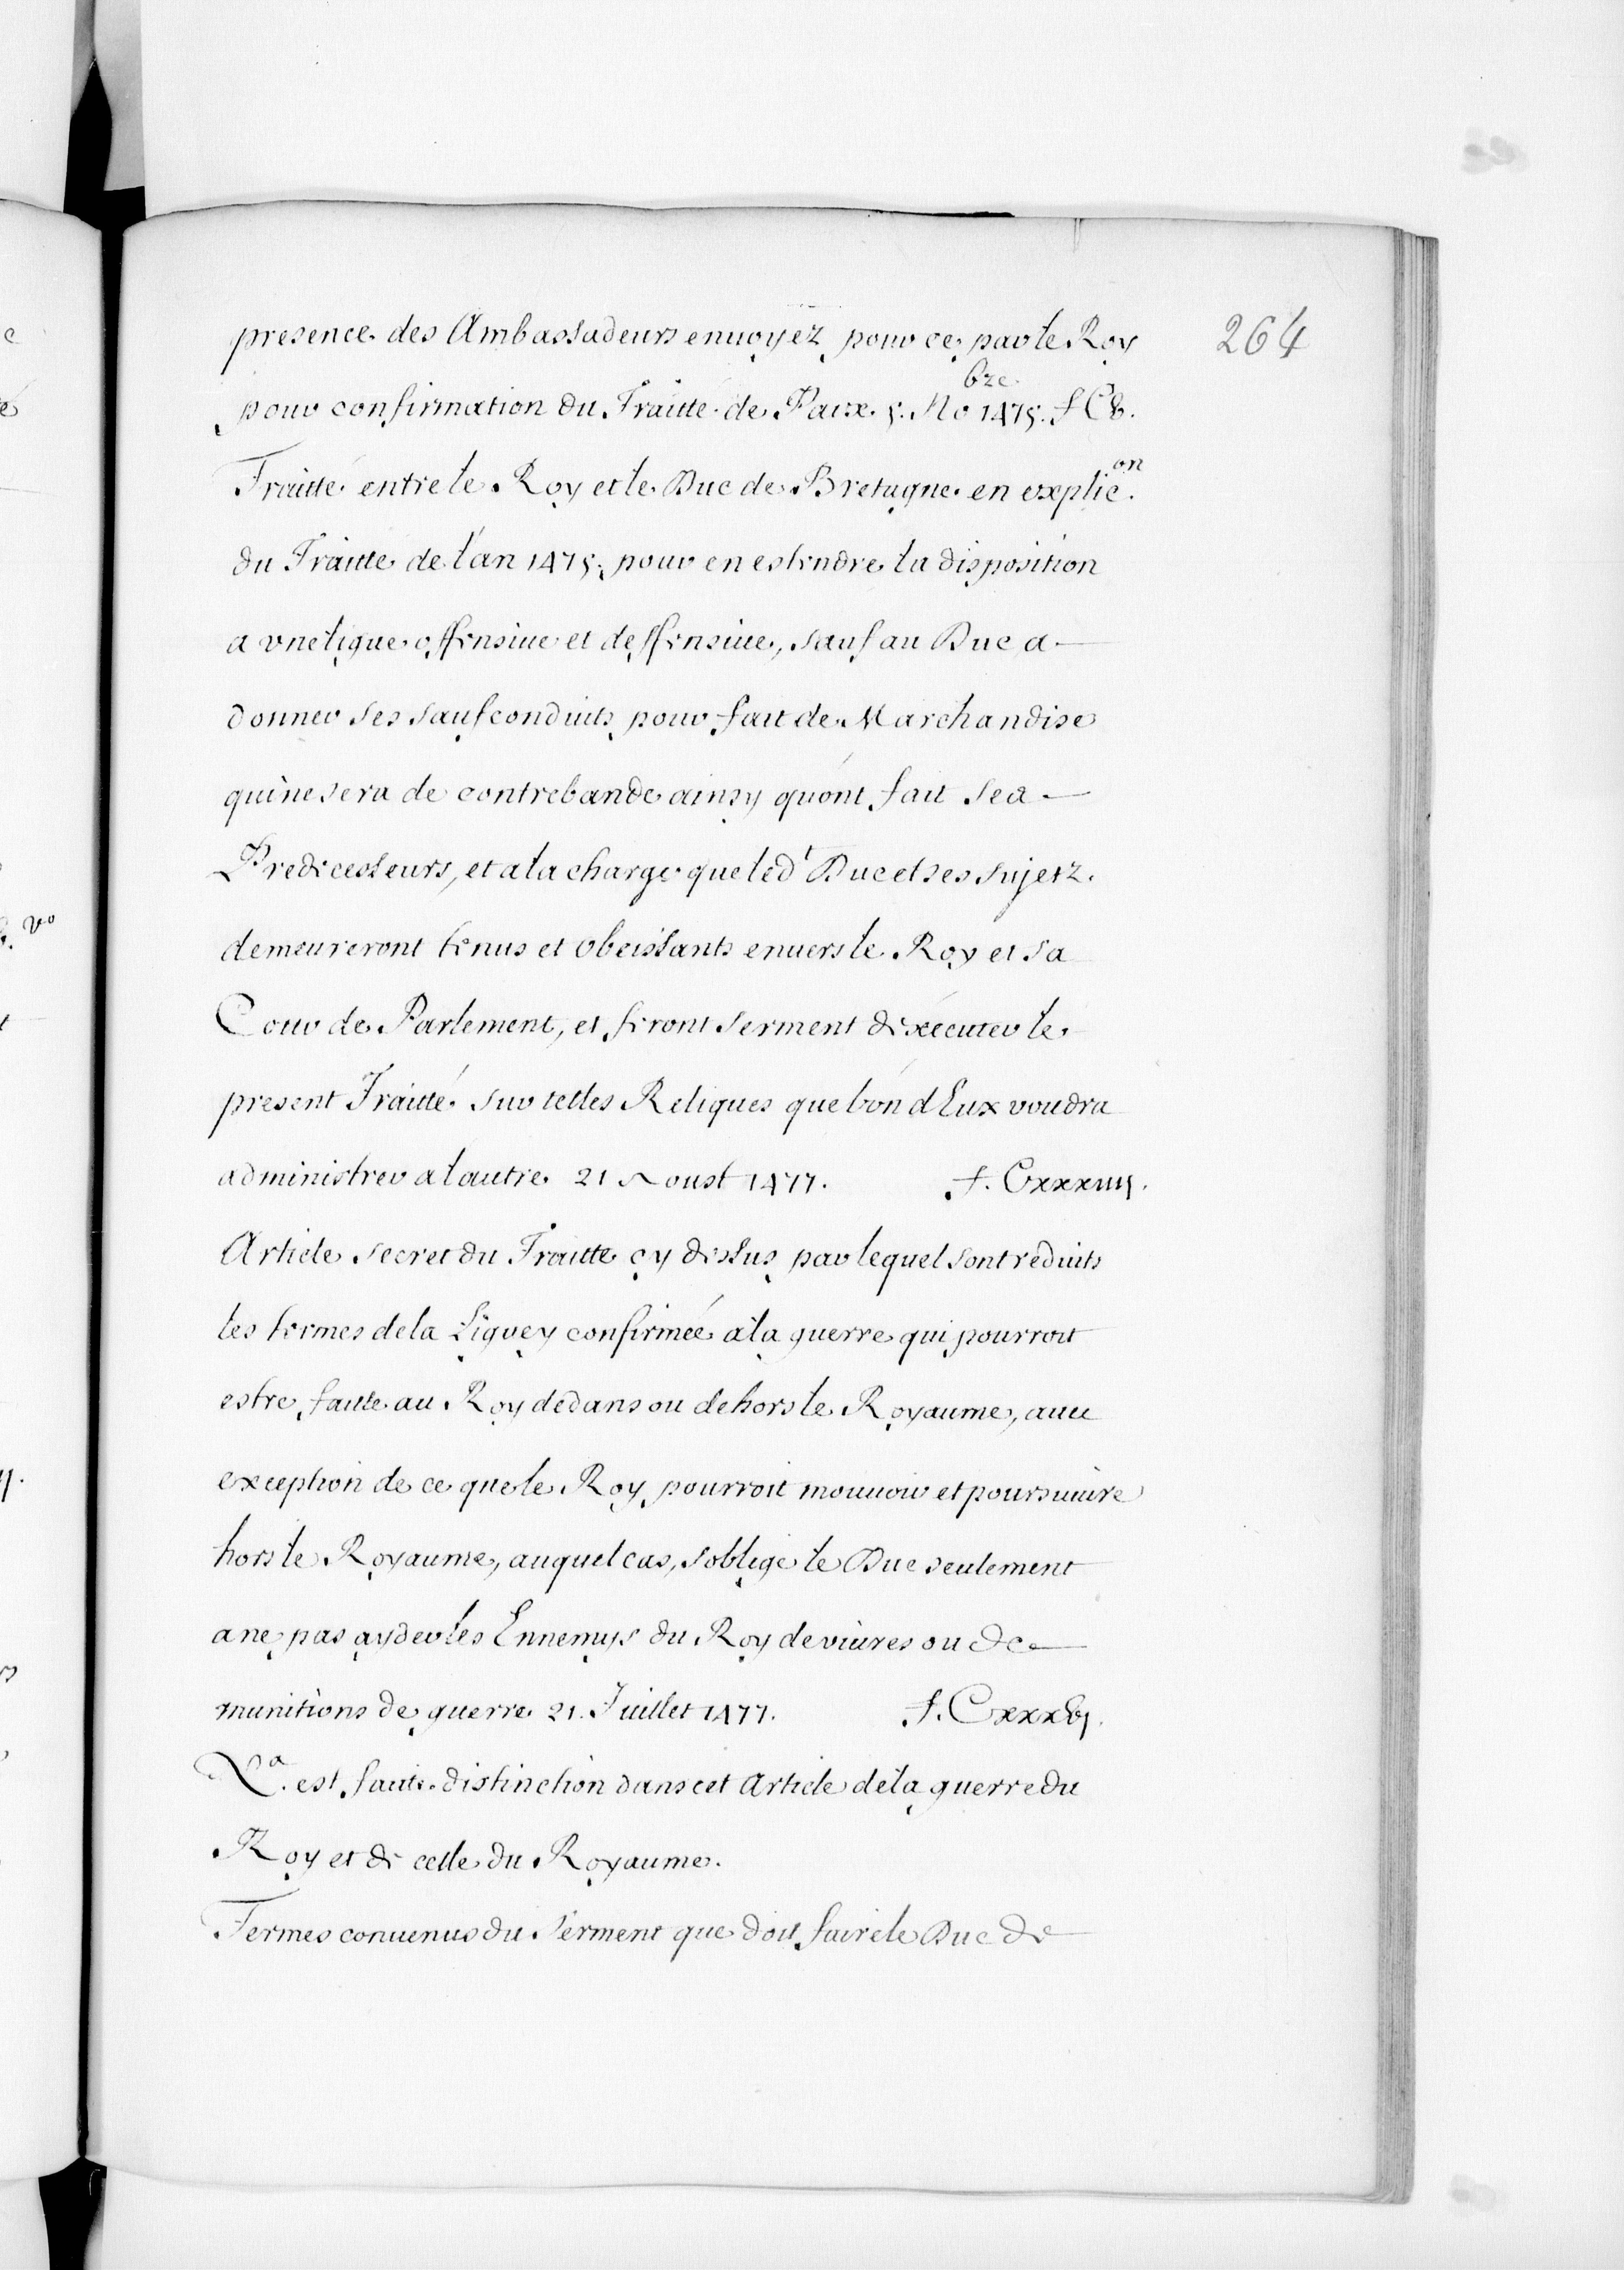 264
presence des Ambassadeurs enuoyez pour ce par le Roy
pour confirmation du Traitté de Paix 5. No^bre 1475. f Cb.
Traitté entre le Roy et le Duc de Bretagne en explic^on.
du Traitté de l'an 1475, pour en estendre la disposition
a vne ligue offensiue et deffensiue, sauf au Duc a
donner ses saufconduits pour fait de Marchandise
qui ne sera de contrebande ainsy qu'ont fait ses
Predecesseurs, et a la charge que led^t Duc et ses sujetz
demeureront tenus et obeissants enuers le Roy et sa
Cour de Parlement, et feront serment d'exécuter le
present Traitté sur telles Reliques que l'on d'Eux voudra
administrer a l'autre 21 Aoust 1477. f. Cxxxiiij.
Article secret du Traitté cy dessus par lequel sont reduits
les termes de la Ligue y confirmée a la guerre qui pourroit
estre faitte au Roy dedans ou dehors le Royaume, auec
exception de ce que le Roy pourroit mouuoir et poursuiure
hors le Royaume, auquel cas, s'oblige le Duc seulement
a ne pas ayder les Ennemys du Roy de viures ou de
munitions de guerre 21. Juillet 1477. f. Cxxxbj.
N^a. est faite distinction dans cet Article de la guerre du
Roy et de celle du Royaume.
Termes conuenus du serment que doit faire le Duc de